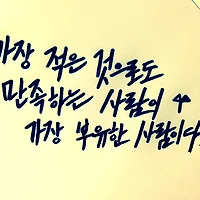 가장 적은 것으로도
만족하는 사람이
가장 부유한 사람이다